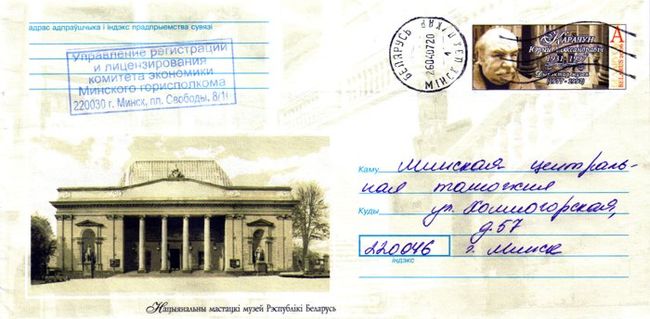 адрас адпраўшчыка і індэкс прадпрыемства сувязі
Управление регистрации
и лицензирования
комитета экономики
Минского горисполкома
220030 г. Минск, пл. Свободы, 8/1
БЕЛАРУСЬ
26040720
МІНСК
КАРАЧУН
1931-1997
(1977-1997)
A
Каму Минская централь-
ная таможня
Куды ул. Колмогорская,
д.57
220046 г. Минск
індэкс
Нацыянальны мастацкі музей Рэспублікі Беларусь